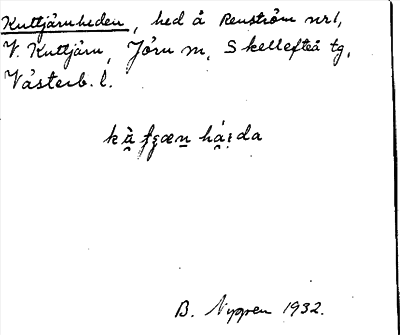 Kuttjärnheden, hed å Renström nr 1,
V. Kuttjärn, Jörn sn, Skellefteå tg,
Västerb. l.
B. Nygren 1932.